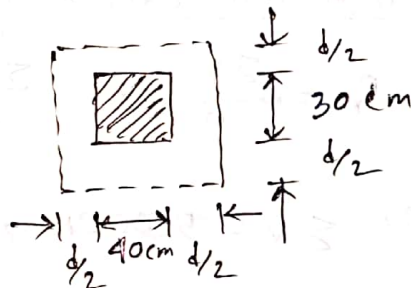 d/2
30 cm
d/2
d/2 40cm d/2